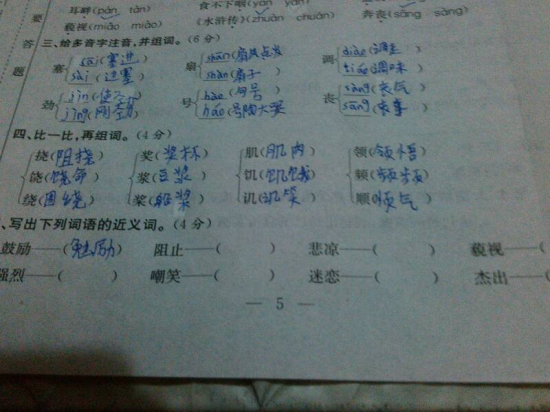 耳畔(pàn tàn) 食不下咽(yàn yān) 奔丧(sāng sàng)
藐视(miǎo miào) 《水浒传》(zhuàn chuán)
要答题
三、给多音字注音,并组词。(6分)
塞 扇 调
sài(边塞) shàn(扇子) tiáo(调味)
劲 号 丧
jìn(使 ) hào(句号) sàng(丧气)
jìng( ) háo(号啕大哭) sāng(丧事)
四、比一比,再组词。(4分)
挠(阻挠) 奖(奖杯) 肌(肌肉) 领(领悟)
饶(饶命) 浆(豆浆) 饥(饥饿) 频(频频)
绕(围绕) 桨(船桨) 讥(讥笑) 顺(顺气)
、写出下列词语的近义词。(4分)
鼓励——(勉励) 阻止——( ) 悲凉——( ) 藐视——
强烈——( ) 嘲笑——( ) 迷恋——( ) 杰出——(
— 5 —